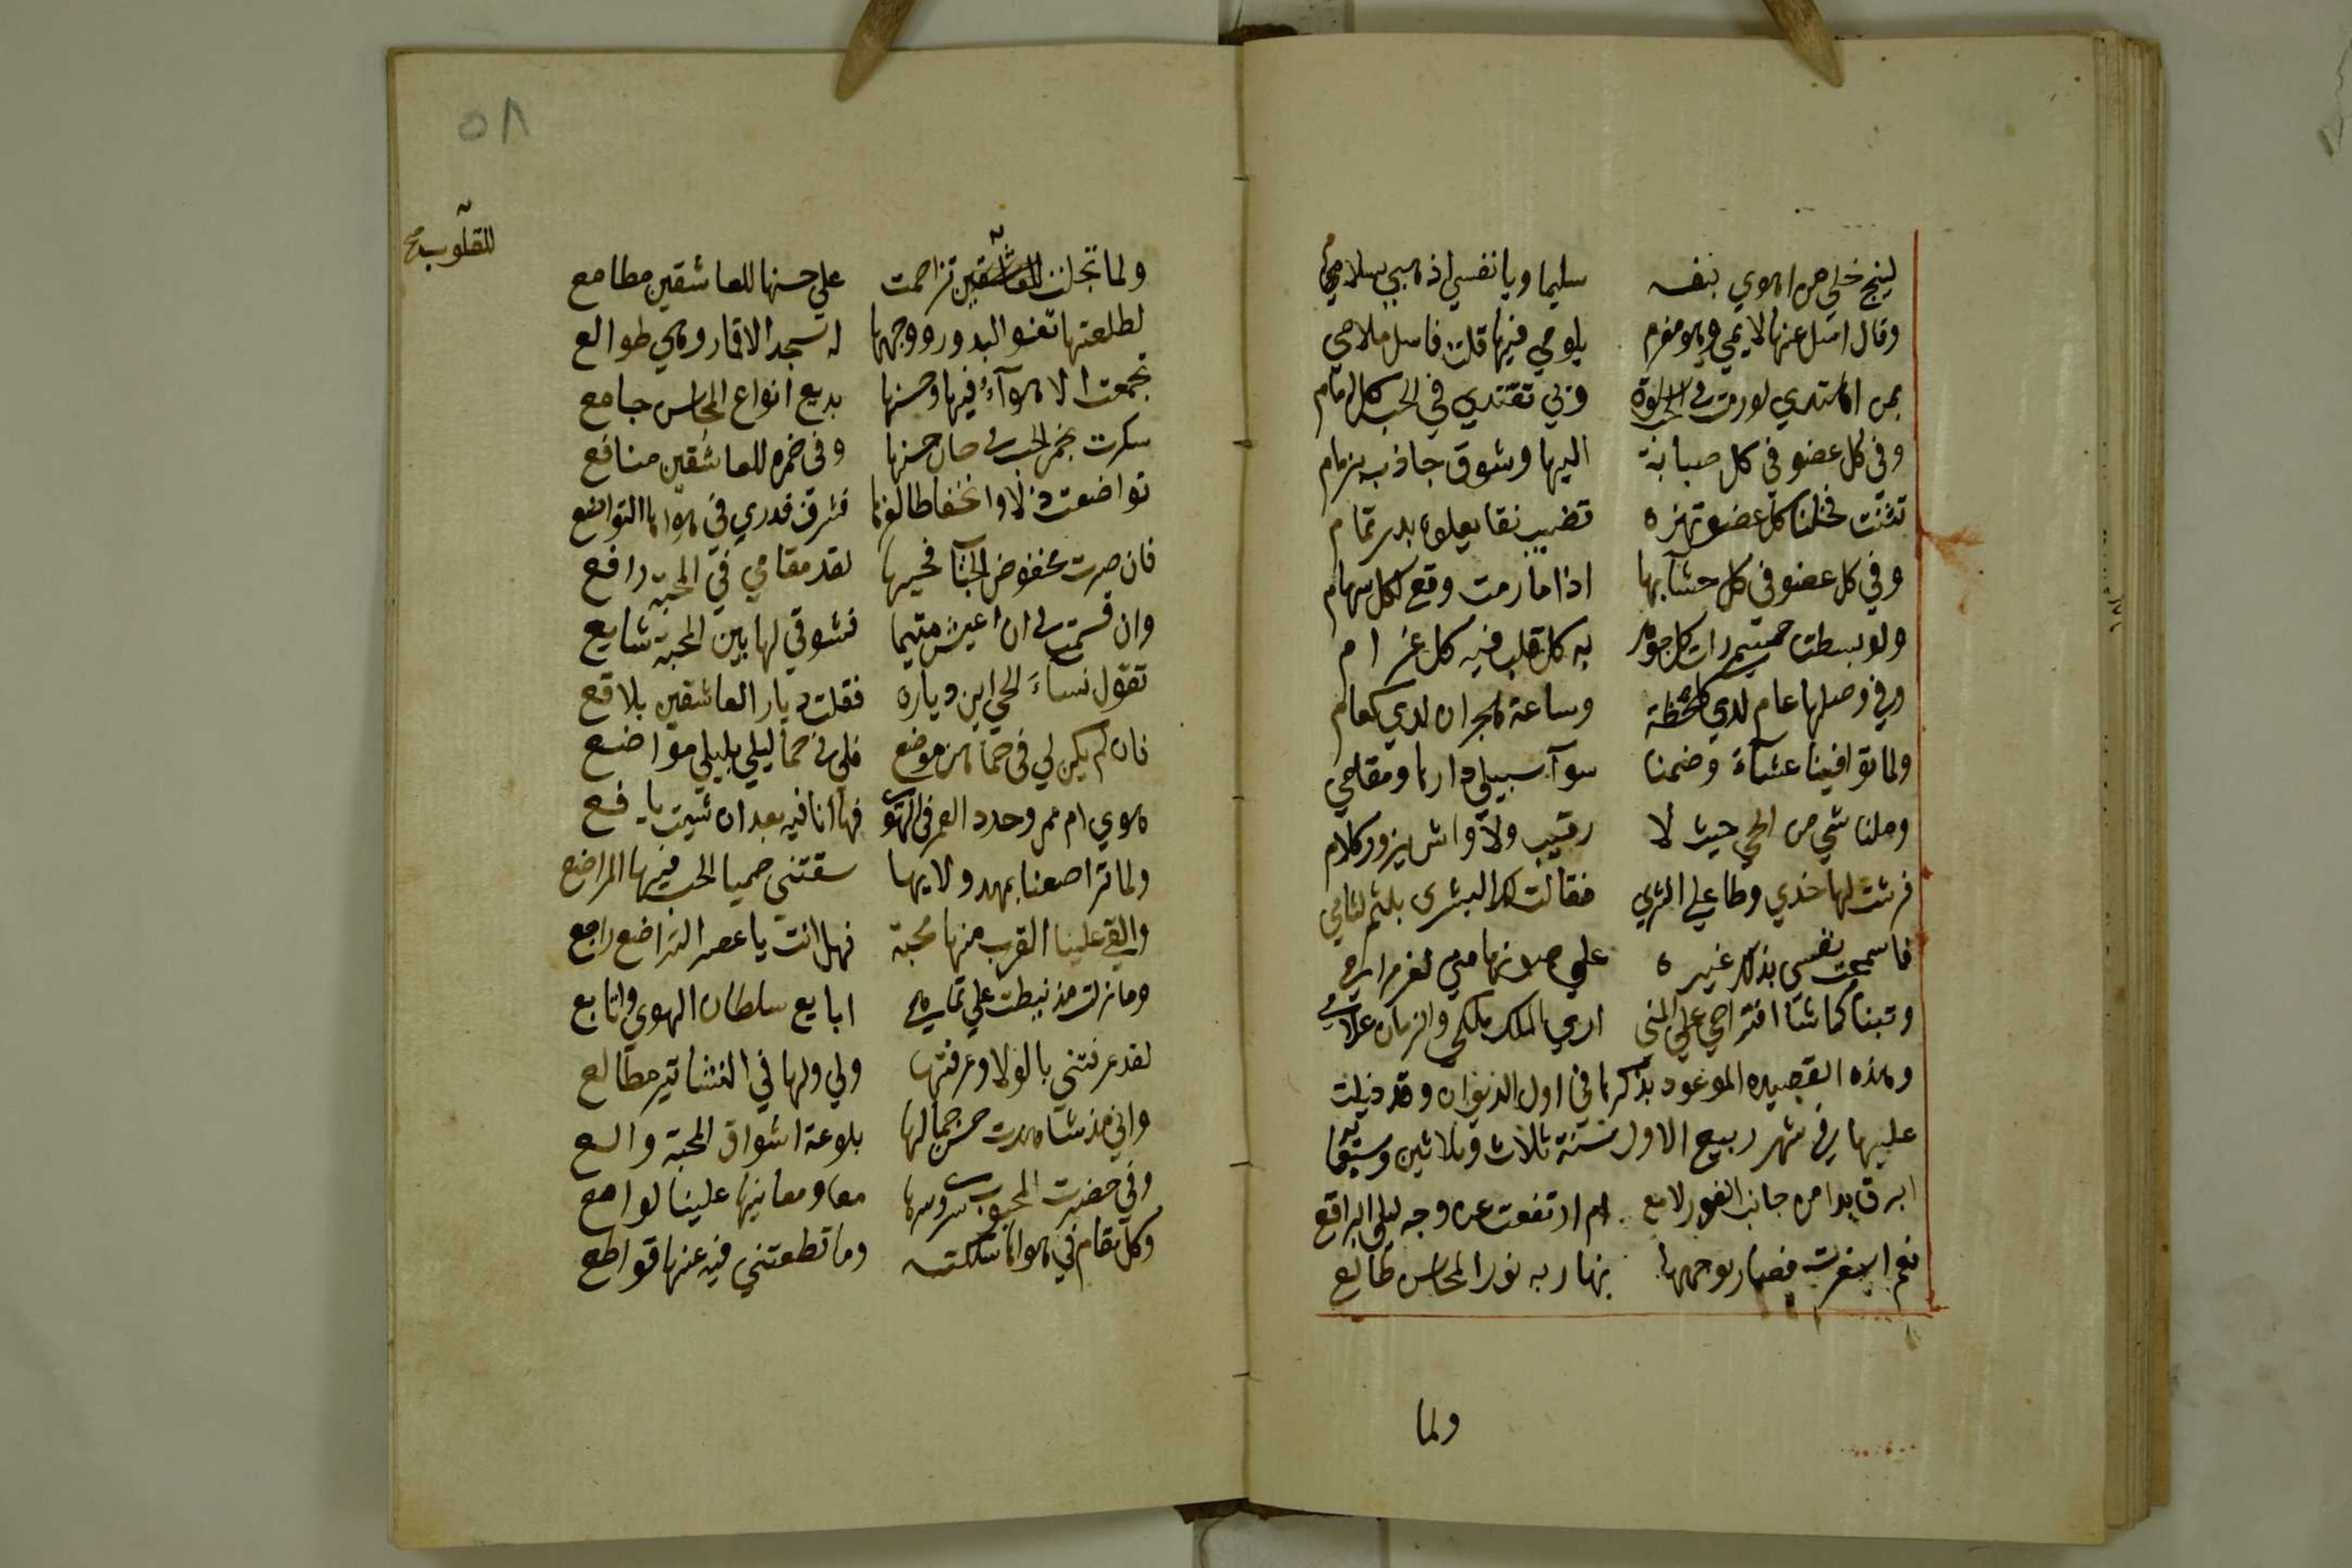 لينج خلي من الهوي بنفسه سليما ويا نفسي اذهبي بسلامي
وقال اسل عنها لايمي وهو مغرم بلومي فيها قلت فاسل ملامي
بمن اهتدي لورمت وبي تقتدي في الحب كل امام
وفي كل عضو في كل صبابة اليها وشوق جاذب بزمام
تثنت فخلنا كل عضو تهزه قضيب نقا يعلوه بدر تمام
وفي كل عضو في كل حشا بها اذا ما رمت وقع لكل سهام
ولو بسطت جسمي رات كل جوهر به كل قلب فيه كل غرام
وفي وصلها عام لدي كلحظة وساعة هجران لدي كعام
ولما توافينا عشآء وضمنا سوآ سبيلي دارها ومقامي
وملنا شي من الحي حيث لا رقيب ولا واش يزور كلام
فرشت لها خدي وطا علي الثري فقالت لك البشرى بلثم لثامي
فما سمحت نفسي بذكر غيره علي صونها مني لعز مرامي
وتبنا كما شا اقتراحي علي المني اري الملك ملكي والزمان غلامي
وهذه القصيده الموعود بذكرها في اول الديوان وقد ذيلت
عليها في شهر ربيع الاول سنة ثلاث وثلاثين وسبعمايه
ابرق بدا من جانب الغور لامع ام ارتفعت عن وجه ليلي البراقع
نعم اسفرت فصار بوجهها نهار به نور المحاسن طالع
ولما
٥٨
للقلوب صح
ولما تجلت للعاشقين تزاحمت علي حسنها للعاشقين مطامع
لطلعتها تعنو البدور ووجهها له تسجد الاقمار وهي طوالع
تجمعت الاهوآء فيها وحسنها بديع انواع المحاسن جامع
سكرت بخمر الحب في حان حسنها وفي خمره للعاشقين منافع
تواضعت ذلا وانخفاضا لعزها فشرف قدري في هواها التواضع
فان صرت مخفوض الجنآ فحبها لقدر مقامي في المحبة رافع
وان قسمت لي ان اعيش متيما فشوقي لها بين المحبة شايع
تقول نسآء الحي اين دياره فقلت ديار العاشقين بلاقع
فان لم يكن لي في حماهن موضع فلي في حما ليلي بليلي مواضع
هوي ام عمرو جدد العمر في الهوى فها انا فيه بعد ان شيبت يافع
ولما تراضعنا بمهد ولايها سقتني حميا الحب فيها المراضع
والقي علينا القرب منها محبة فهل انت يا عصر التراضع راجع
وما زلت مذ نيطت علي تمايمي ابايع سلطان الهوي واتابع
لقد عرفتني بالولا وعرفتها ولي ولها في النشاتين مطالع
واني مذ شاهدت حسن جمالها بلوعة اشواق المحبة والع
وفي حضرت المحبوب سري وسرها معا ومعانيها علينا لوامع
وكل مقام في هواها سلكته وما قطعتني فيه عنها قواطع